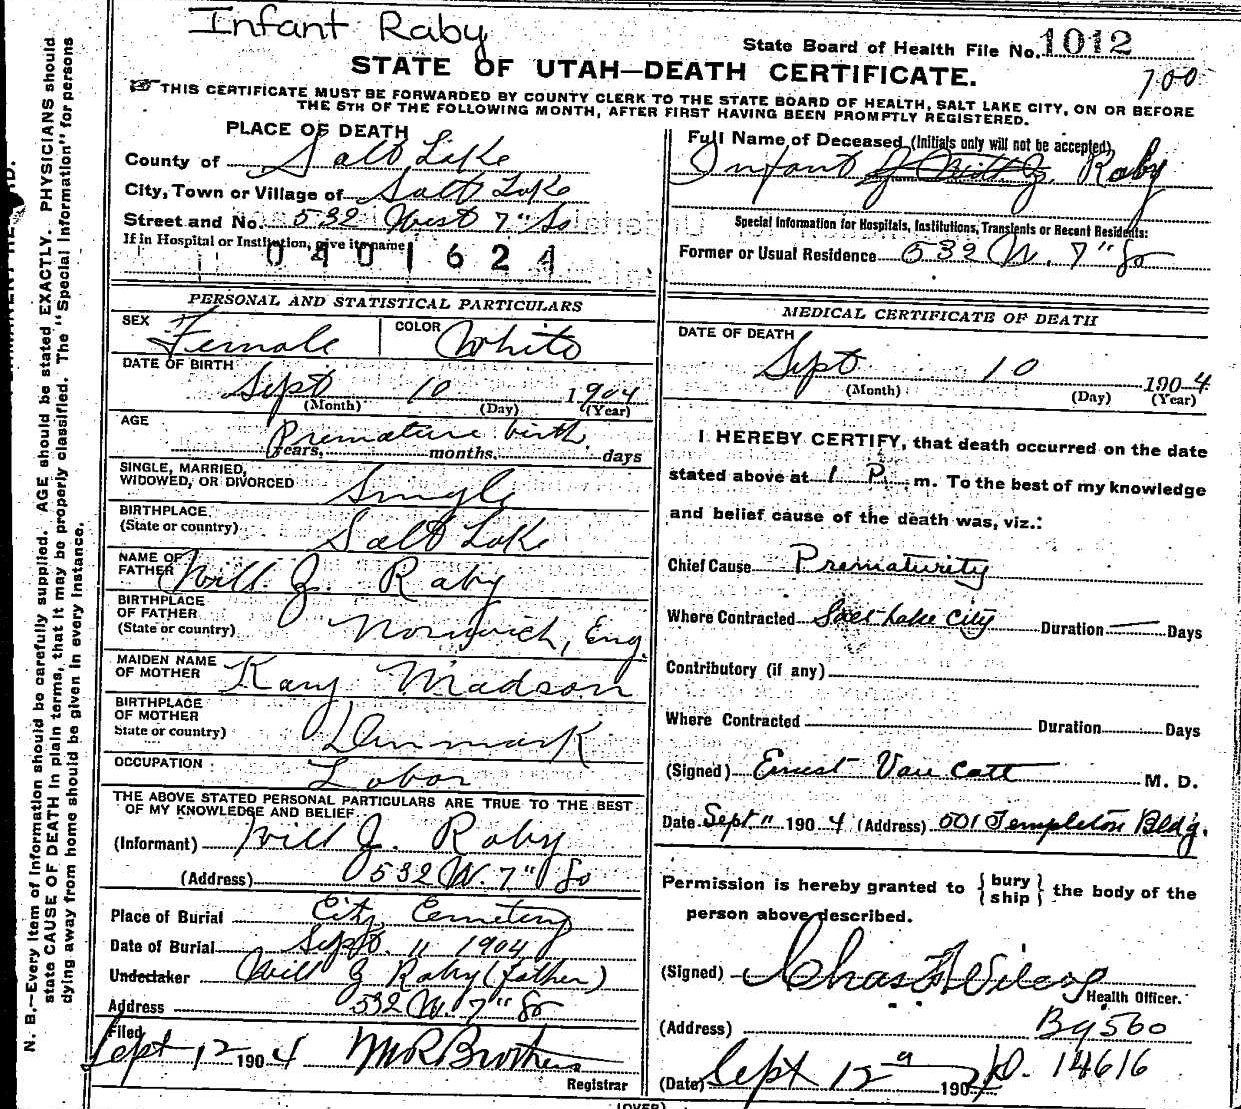 Infant Raby
State Board of Health File No. 1012
STATE OF UTAH—DEATH CERTIFICATE.
700
THIS CERTIFICATE MUST BE FORWARDED BY COUNTY CLERK TO THE STATE BOARD OF HEALTH, SALT LAKE CITY, ON OR BEFORE
THE 5TH OF THE FOLLOWING MONTH, AFTER FIRST HAVING BEEN PROMPTLY REGISTERED.
PLACE OF DEATH
County of Salt Lake
City, Town or Village of Salt Lake
Street and No. 532 West 7" So
If in Hospital or Institution, give its name
0401624
PERSONAL AND STATISTICAL PARTICULARS
SEX Female COLOR White
DATE OF BIRTH
Sept 10 1904
(Month) (Day) (Year)
AGE
Premature birth.
years, months, days
SINGLE, MARRIED,
WIDOWED, OR DIVORCED Single
BIRTHPLACE
(State or country) Salt Lake
NAME OF
FATHER Will J. Raby
BIRTHPLACE
OF FATHER
(State or country) Norwich, Eng.
MAIDEN NAME
OF MOTHER Kary Madson
BIRTHPLACE
OF MOTHER
State or country) Denmark
OCCUPATION Labor
THE ABOVE STATED PERSONAL PARTICULARS ARE TRUE TO THE BEST
OF MY KNOWLEDGE AND BELIEF
(Informant) Will J. Raby
(Address) 532 W. 7" So
Place of Burial City Cemetery
Date of Burial Sept. 11 1904
Undertaker Will J Raby (father)
Address 532 W. 7" So
Filed
Sept 12 1904 M R Brothers
Registrar
Full Name of Deceased (Initials only will not be accepted)
Infant Raby
Special Information for Hospitals, Institutions, Transients or Recent Residents:
Former or Usual Residence 532 W. 7" So
MEDICAL CERTIFICATE OF DEATH
DATE OF DEATH
Sept 10 1904
(Month) (Day) (Year)
I HEREBY CERTIFY, that death occurred on the date
stated above at 1 P. m. To the best of my knowledge
and belief cause of the death was, viz.:
Chief Cause Prematurity
Where Contracted Salt Lake City Duration — Days
Contributory (if any)
Where Contracted Duration Days
(Signed) Ernest Van Cott M. D.
Date Sept 11 1904 (Address) 001 Templeton Bldg.
Permission is hereby granted to { bury
ship } the body of the
person above described.
(Signed) Chas F Wilcox
Health Officer.
(Address) B4560
(Date) Sept 12 1904 D. 14616
(OVER)
N. B.—Every item of information should be carefully supplied. AGE should be stated EXACTLY. PHYSICIANS should
state CAUSE OF DEATH in plain terms, that it may be properly classified. The "Special Information" for persons
dying away from home should be given in every instance.